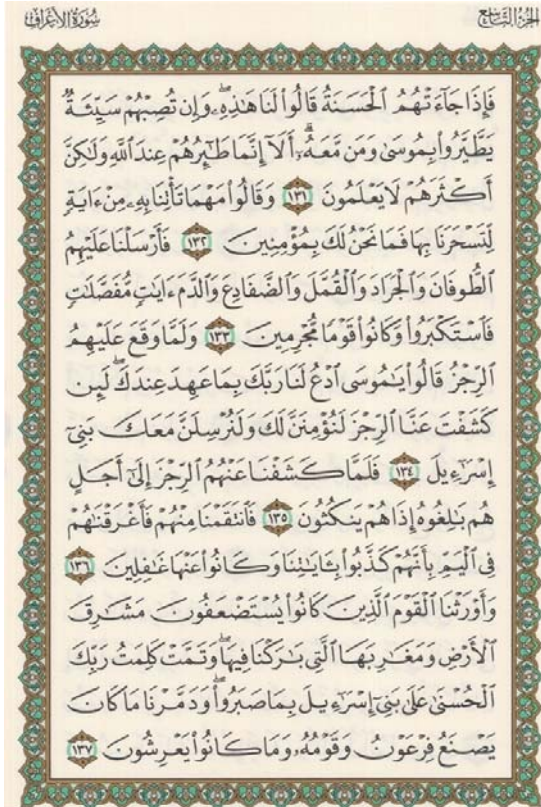 سُورَةُ الأَعْرَافِ
الجُزْءُ التَّاسِعُ
فَإِذَا جَآءَتْهُمُ ٱلْحَسَنَةُ قَالُوا۟ لَنَا هَـٰذِهِۦ ۖ وَإِن تُصِبْهُمْ سَيِّئَةٌ
يَطَّيَّرُوا۟ بِمُوسَىٰ وَمَن مَّعَهُۥٓ ۗ أَلَآ إِنَّمَا طَـٰٓئِرُهُمْ عِندَ ٱللَّهِ وَلَـٰكِنَّ
أَكْثَرَهُمْ لَا يَعْلَمُونَ ١٣١ وَقَالُوا۟ مَهْمَا تَأْتِنَا بِهِۦ مِنْ ءَايَةٍ
لِّتَسْحَرَنَا بِهَا فَمَا نَحْنُ لَكَ بِمُؤْمِنِينَ ١٣٢ فَأَرْسَلْنَا عَلَيْهِمُ
ٱلطُّوفَانَ وَٱلْجَرَادَ وَٱلْقُمَّلَ وَٱلضَّفَادِعَ وَٱلدَّمَ ءَايَـٰتٍ مُّفَصَّلَـٰتٍ
فَٱسْتَكْبَرُوا۟ وَكَانُوا۟ قَوْمًا مُّجْرِمِينَ ١٣٣ وَلَمَّا وَقَعَ عَلَيْهِمُ
ٱلرِّجْزُ قَالُوا۟ يَـٰمُوسَى ٱدْعُ لَنَا رَبَّكَ بِمَا عَهِدَ عِندَكَ ۖ لَئِن
كَشَفْتَ عَنَّا ٱلرِّجْزَ لَنُؤْمِنَنَّ لَكَ وَلَنُرْسِلَنَّ مَعَكَ بَنِىٓ
إِسْرَٰٓءِيلَ ١٣٤ فَلَمَّا كَشَفْنَا عَنْهُمُ ٱلرِّجْزَ إِلَىٰٓ أَجَلٍ
هُم بَـٰلِغُوهُ إِذَا هُمْ يَنكُثُونَ ١٣٥ فَٱنتَقَمْنَا مِنْهُمْ فَأَغْرَقْنَـٰهُمْ
فِى ٱلْيَمِّ بِأَنَّهُمْ كَذَّبُوا۟ بِـَٔايَـٰتِنَا وَكَانُوا۟ عَنْهَا غَـٰفِلِينَ ١٣٦
وَأَوْرَثْنَا ٱلْقَوْمَ ٱلَّذِينَ كَانُوا۟ يُسْتَضْعَفُونَ مَشَـٰرِقَ
ٱلْأَرْضِ وَمَغَـٰرِبَهَا ٱلَّتِى بَـٰرَكْنَا فِيهَا ۖ وَتَمَّتْ كَلِمَتُ رَبِّكَ
ٱلْحُسْنَىٰ عَلَىٰ بَنِىٓ إِسْرَٰٓءِيلَ بِمَا صَبَرُوا۟ ۖ وَدَمَّرْنَا مَا كَانَ
يَصْنَعُ فِرْعَوْنُ وَقَوْمُهُۥ وَمَا كَانُوا۟ يَعْرِشُونَ ١٣٧